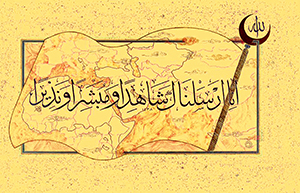 الله
انا ارسلناك شاهدا ومبشرا ونذيرا